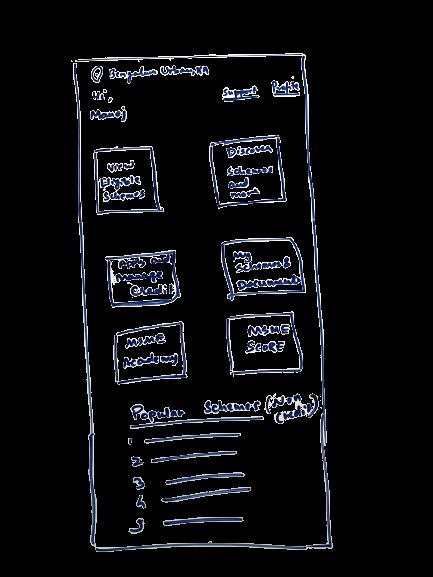 Bengaluru Urban, KA
Hi,
Manoj
Support
Profile
View
Eligible
Schemes
Discover
Schemes
and
more
Apply and
Manage
Credit
My
Schemes &
Documents
MSME
Academy
MSME
SCORE
Popular Schemes (Non
Credit)
1
2
3
4
5